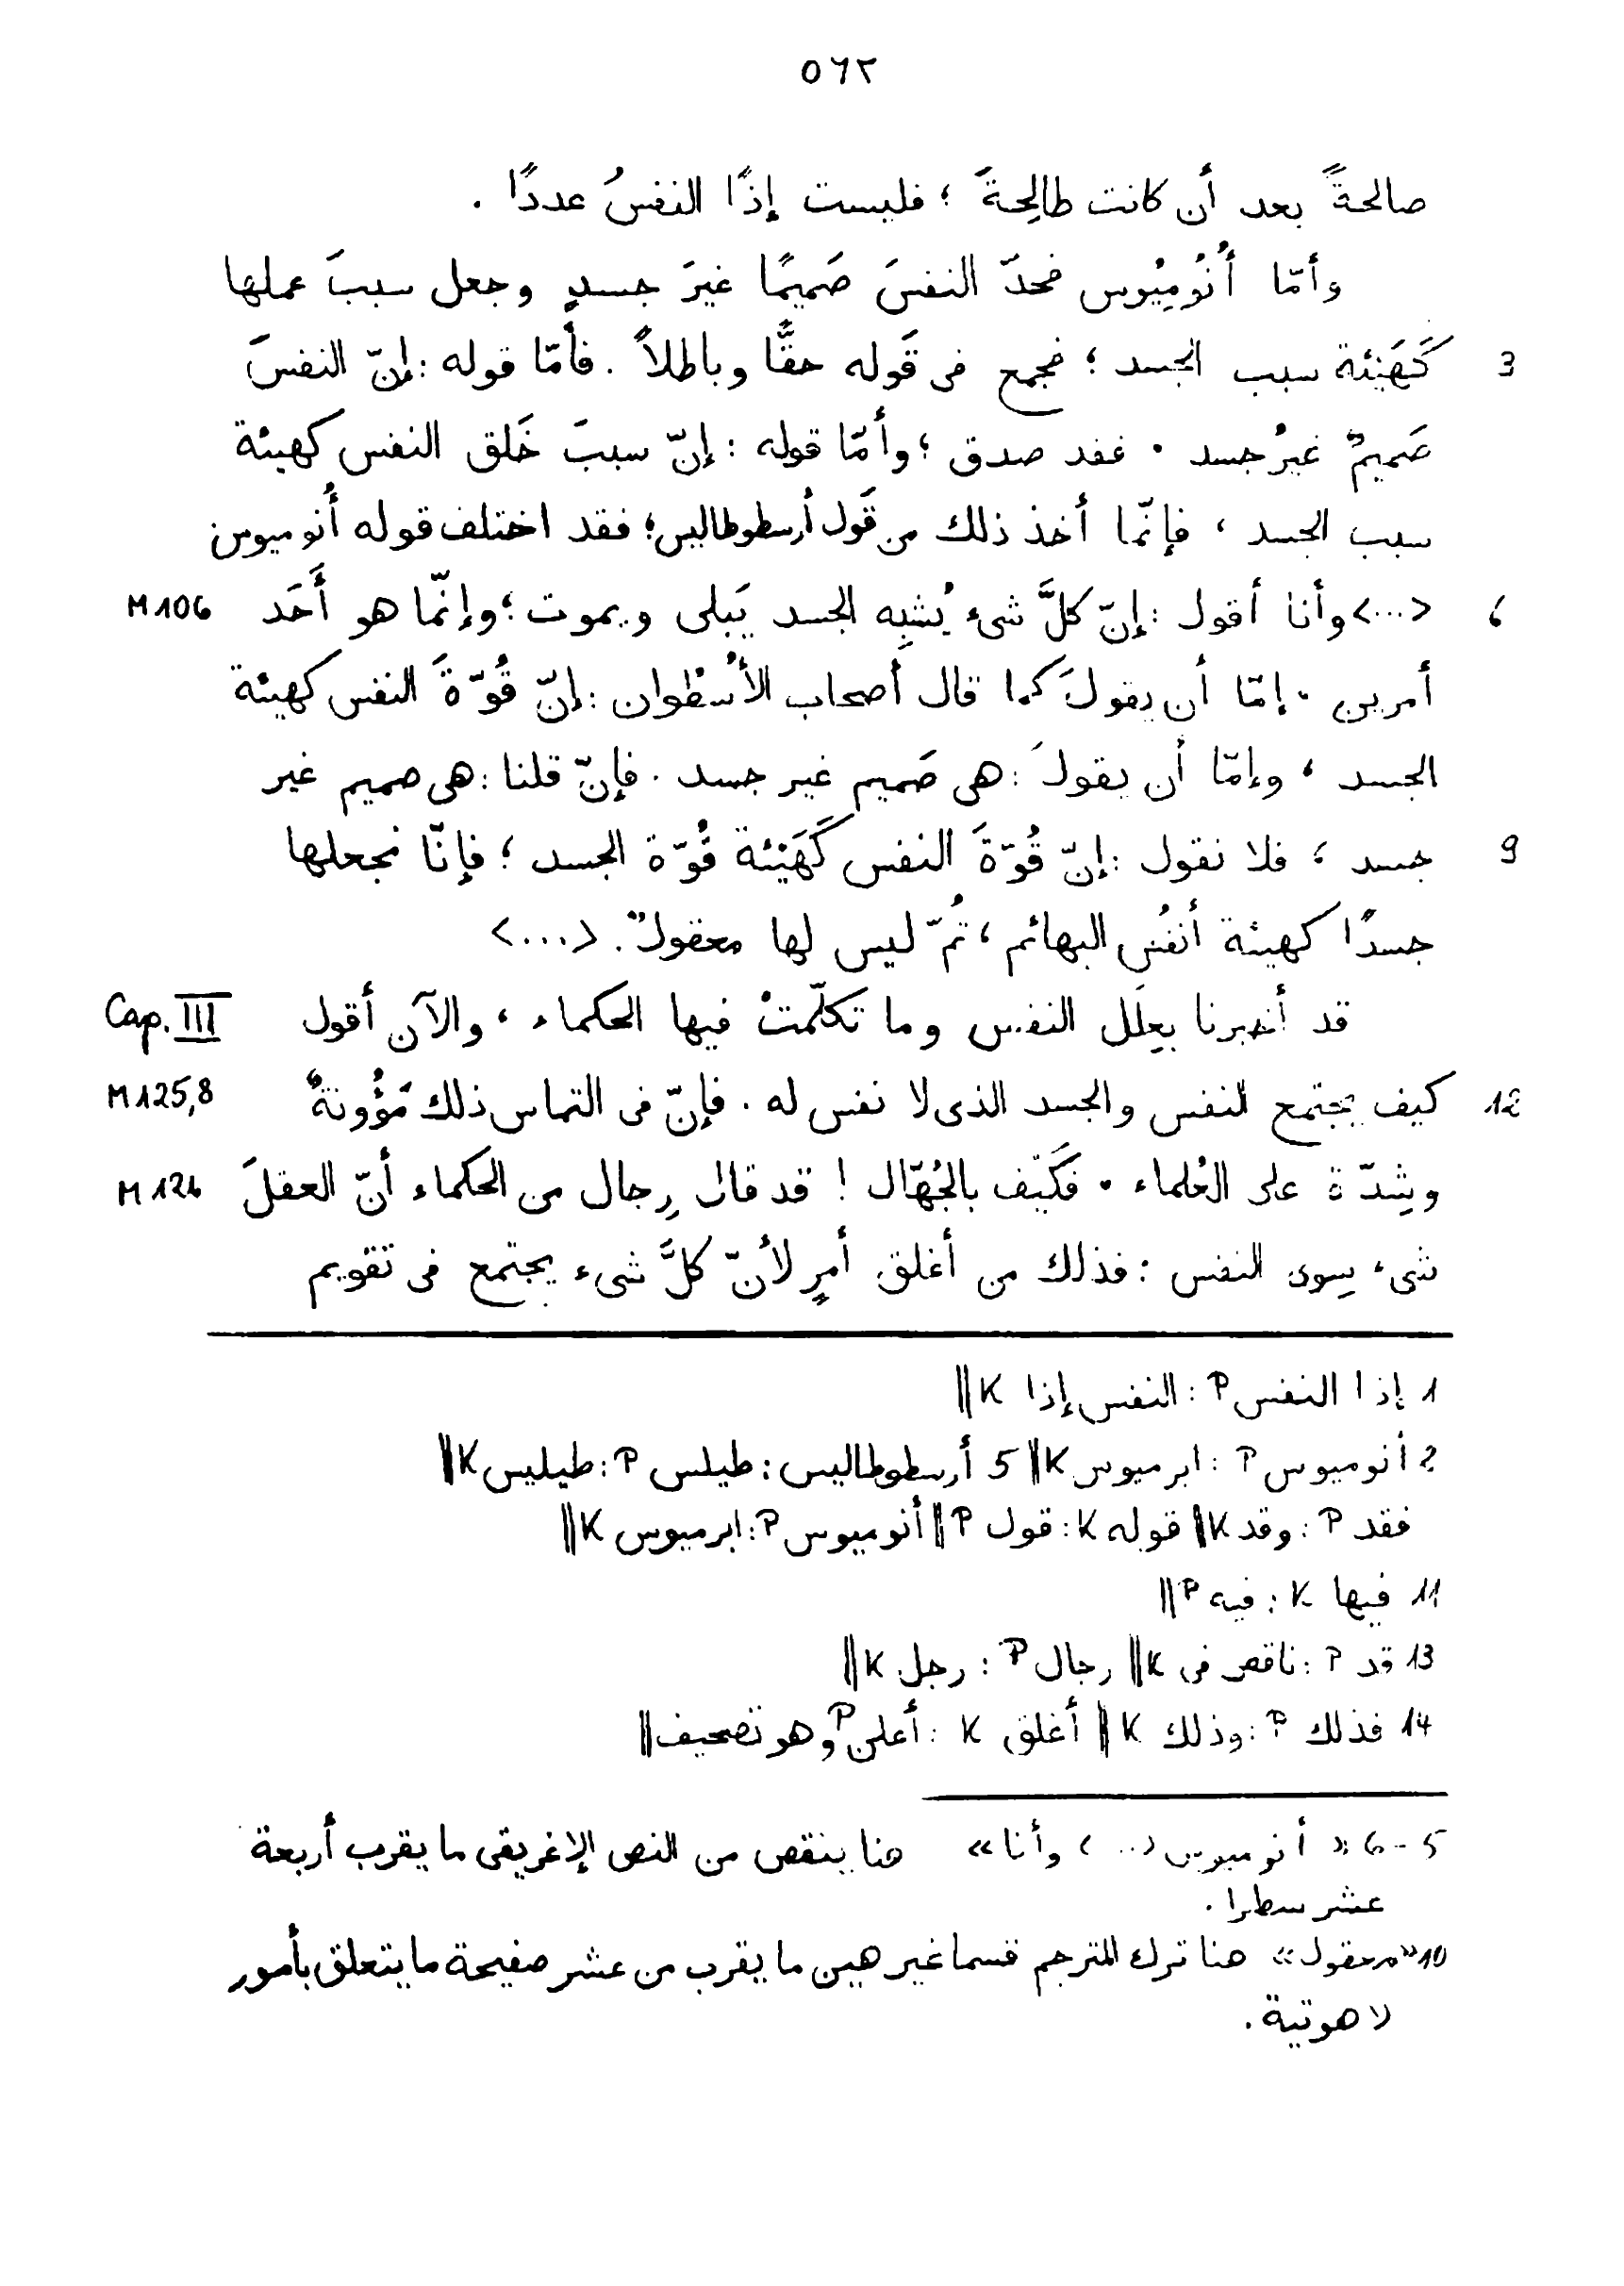 ٥٦٢
صالحةً بعد أن كانت طالِحةً ؛ فليست إذًا النفسُ عددًا .
وأمّا أُنُومِيُوس فحدّ النفسَ صَميمًا غيرَ جسدٍ وجعل سببَ عملها
3 كَهَيْئة سبب الجسد ؛ فجمع فى قَوله حقًّا وباطلاً . فأمّا قوله : إنّ النفسَ
صَميمٌ غيرُ جسد ، فقد صدق ؛ وأمّا قوله : إنّ سببَ خَلق النفس كهيئة
سبب الجسد ، فإنّما أخذ ذلك من قَول أرسطوطاليس؛ فقد اختلف قوله أُنوميوس
6 <...> وأنا أقول : إنّ كلَّ شىء يُشبِه الجسد يَبلى ويموت ؛ وإنّما هو أَحَد M 106
أمرين ، إمّا أن يقولَ كما قال أصحاب الأُسْطُوان : إنّ قُوّةَ النفس كهيئة
الجسد ، وإمّا أن يقولَ : هى صَميم غير جسد . فإنّ قلنا : هى صميم غير
9 جسد ، فلا نقول : إنّ قُوّةَ النفس كَهَيْئة قُوّة الجسد ؛ فإنّا نجعلها
جسدًا كهيئة أنفُس البهائم ، ثُمّ ليس لها معقولٌ . <...>
قد أخبرنا بعِلَل النفس وما تكلّمتْ فيها الحكماء ، والآن أقول Cap. III
12 كيف يجتمع للنفس والجسد الذى لا نفس له . فإنّ فى التماس ذلك مَؤُونةٌ M 125,8
وشِدّة على العُلماء ، فكَيْف بالجُهّال ! قد قال رِجال من الحكماء أنّ العقلَ M 126
شىء سِوى النفس : فذلك من أغلق أمرٍ لأنّ كلَّ شىء يجتمع فى تقويم
1 إذا النفس P : النفس إذا K ‖
2 أنوميوس P : ابرميوس K ‖ 5 أرسطوطاليس : طيلس P : طيليس K ‖
فقد P : وقد K ‖ قوله K : قول P ‖ أنوميوس P : ابرميوس K ‖
11 فيها K : فيه P ‖
13 قد P : ناقص فى K ‖ رجال P : رجل K ‖
14 فذلك P : وذلك K ‖ أغلق K : أعلن P وهو تصحيف ‖
5-6 « أنوميوس <...> وأنا » هنا ينقص من النص الإغريقى ما يقرب أربعة
عشر سطرا .
10 « معقول » هنا ترك المترجم قسما غير هين ما يقرب من عشر صفيحة ما يتعلق بأمور
لاهوتية .